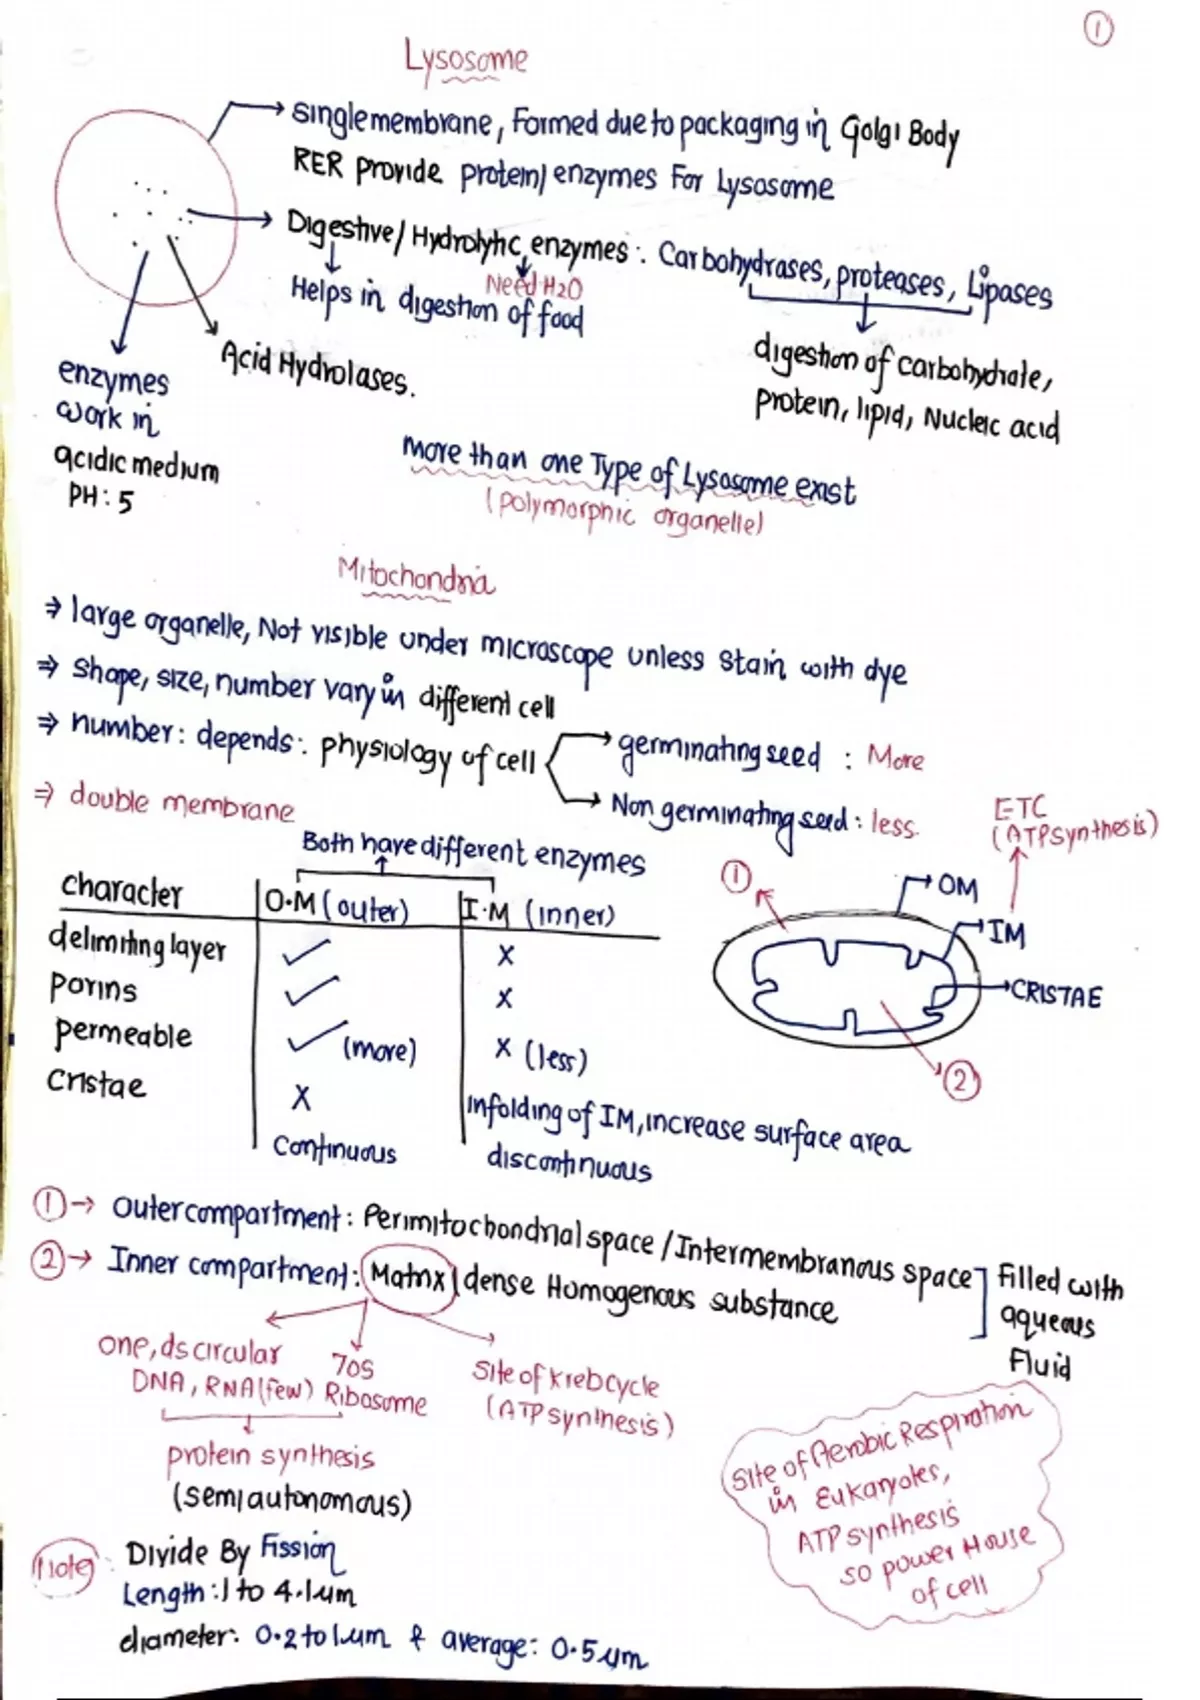 1
Lysosome
single membrane, Formed due to packaging in Golgi Body
RER provide protein/enzymes For Lysosome
Digestive/Hydrolytic enzymes: Carbohydrases, proteases, Lipases
Need H2O
Helps in digestion of food
digestion of carbohydrate,
protein, lipid, Nucleic acid
Acid Hydrolases.
enzymes
work in
acidic medium
PH: 5
more than one Type of Lysosome exist
(polymorphic organelle)
Mitochondria
⇒ large organelle, Not visible under microscope unless stain with dye
⇒ shape, size, number vary in different cell
⇒ number: depends: physiology of cell
germinating seed : More
Non germinating seed: less.
⇒ double membrane
Both have different enzymes
character O.M (outer) I.M (inner)
delimiting layer ✓ x
porins ✓ x
permeable ✓ (more) x (less)
cristae X infolding of IM, increase surface area
continuous discontinuous
ETC
(ATP synthesis)
1
OM
IM
CRISTAE
2
1 → Outer compartment: Perimitochondrial space/Intermembranous space
2 → Inner compartment: Matrix/dense Homogenous substance
filled with
aqueous
Fluid
one, ds circular
DNA, RNA (few)
70S
Ribosome
site of krebcycle
(ATP synthesis)
protein synthesis
(semiautonomous)
Site of Aerobic Respiration
in Eukaryotes,
ATP synthesis
so power House
of cell
Note: Divide By Fission
Length: 1 to 4.1 μm
diameter: 0.2 to 1 μm & average: 0.5 μm